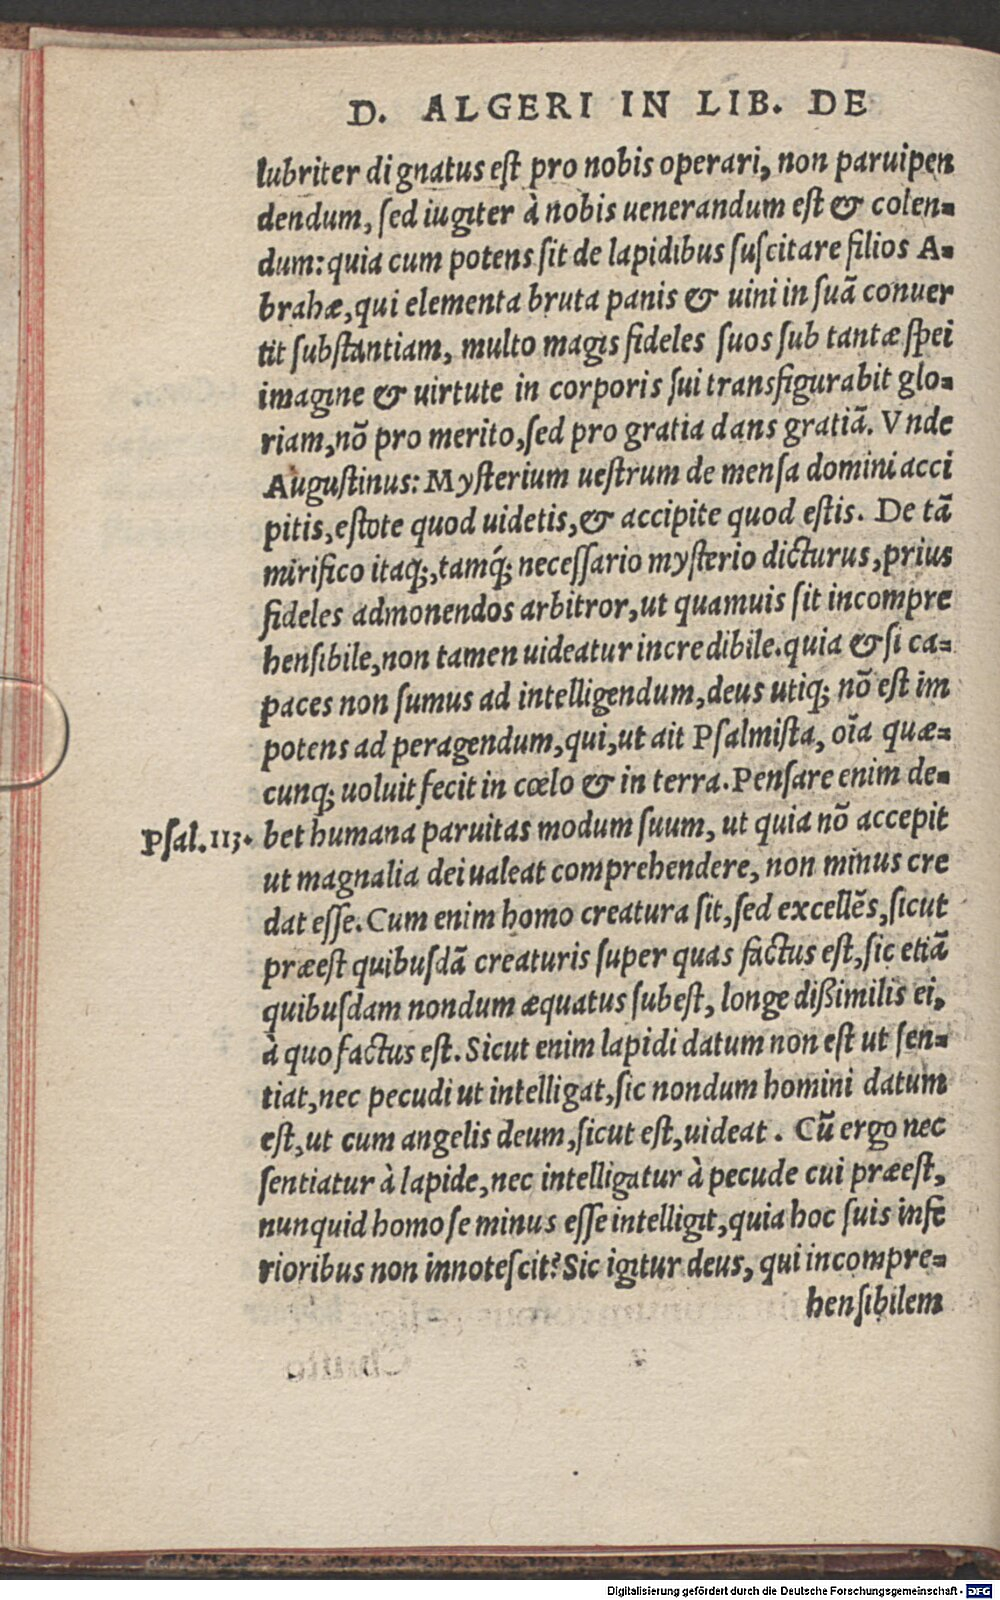 D. ALGERI IN LIB. DE
lubriter dignatus est pro nobis operari, non paruipen
dendum, sed iugiter à nobis uenerandum est & colen-
dum: quia cum potens sit de lapidibus suscitare filios A-
brahæ, qui elementa bruta panis & uini in suā conuer
tit substantiam, multo magis fideles suos sub tantæ spei
imagine & uirtute in corporis sui transfigurabit glo-
riam, nō pro merito, sed pro gratia dans gratiā. Vnde
Augustinus: Mysterium uestrum de mensa domini acci
pitis, estote quod uidetis, & accipite quod estis. De tā
mirifico itaq;, tamq́; necessario mysterio dicturus, prius
fideles admonendos arbitror, ut quamuis sit incompre
hensibile, non tamen uideatur incredibile. quia & si ca-
paces non sumus ad intelligendum, deus utiq; nō est im
potens ad peragendum, qui, ut ait Psalmista, oīa quæ-
cunq; uoluit fecit in cœlo & in terra. Pensare enim de-
Psal. 113. bet humana paruitas modum suum, ut quia nō accepit
ut magnalia dei ualeat comprehendere, non minus cre
dat esse. Cum enim homo creatura sit, sed excellēs, sicut
præest quibusdā creaturis super quas factus est, sic etiā
quibusdam nondum æquatus subest, longe dißimilis ei,
à quo factus est. Sicut enim lapidi datum non est ut sen-
tiat, nec pecudi ut intelligat, sic nondum homini datum
est, ut cum angelis deum, sicut est, uideat. Cū ergo nec
sentiatur à lapide, nec intelligatur à pecude cui præest,
nunquid homo se minus esse intelligit, quia hoc suis infe
rioribus non innotescit? Sic igitur deus, qui incompre-
hensibilem
Digitalisierung gefördert durch die Deutsche Forschungsgemeinschaft - DFG